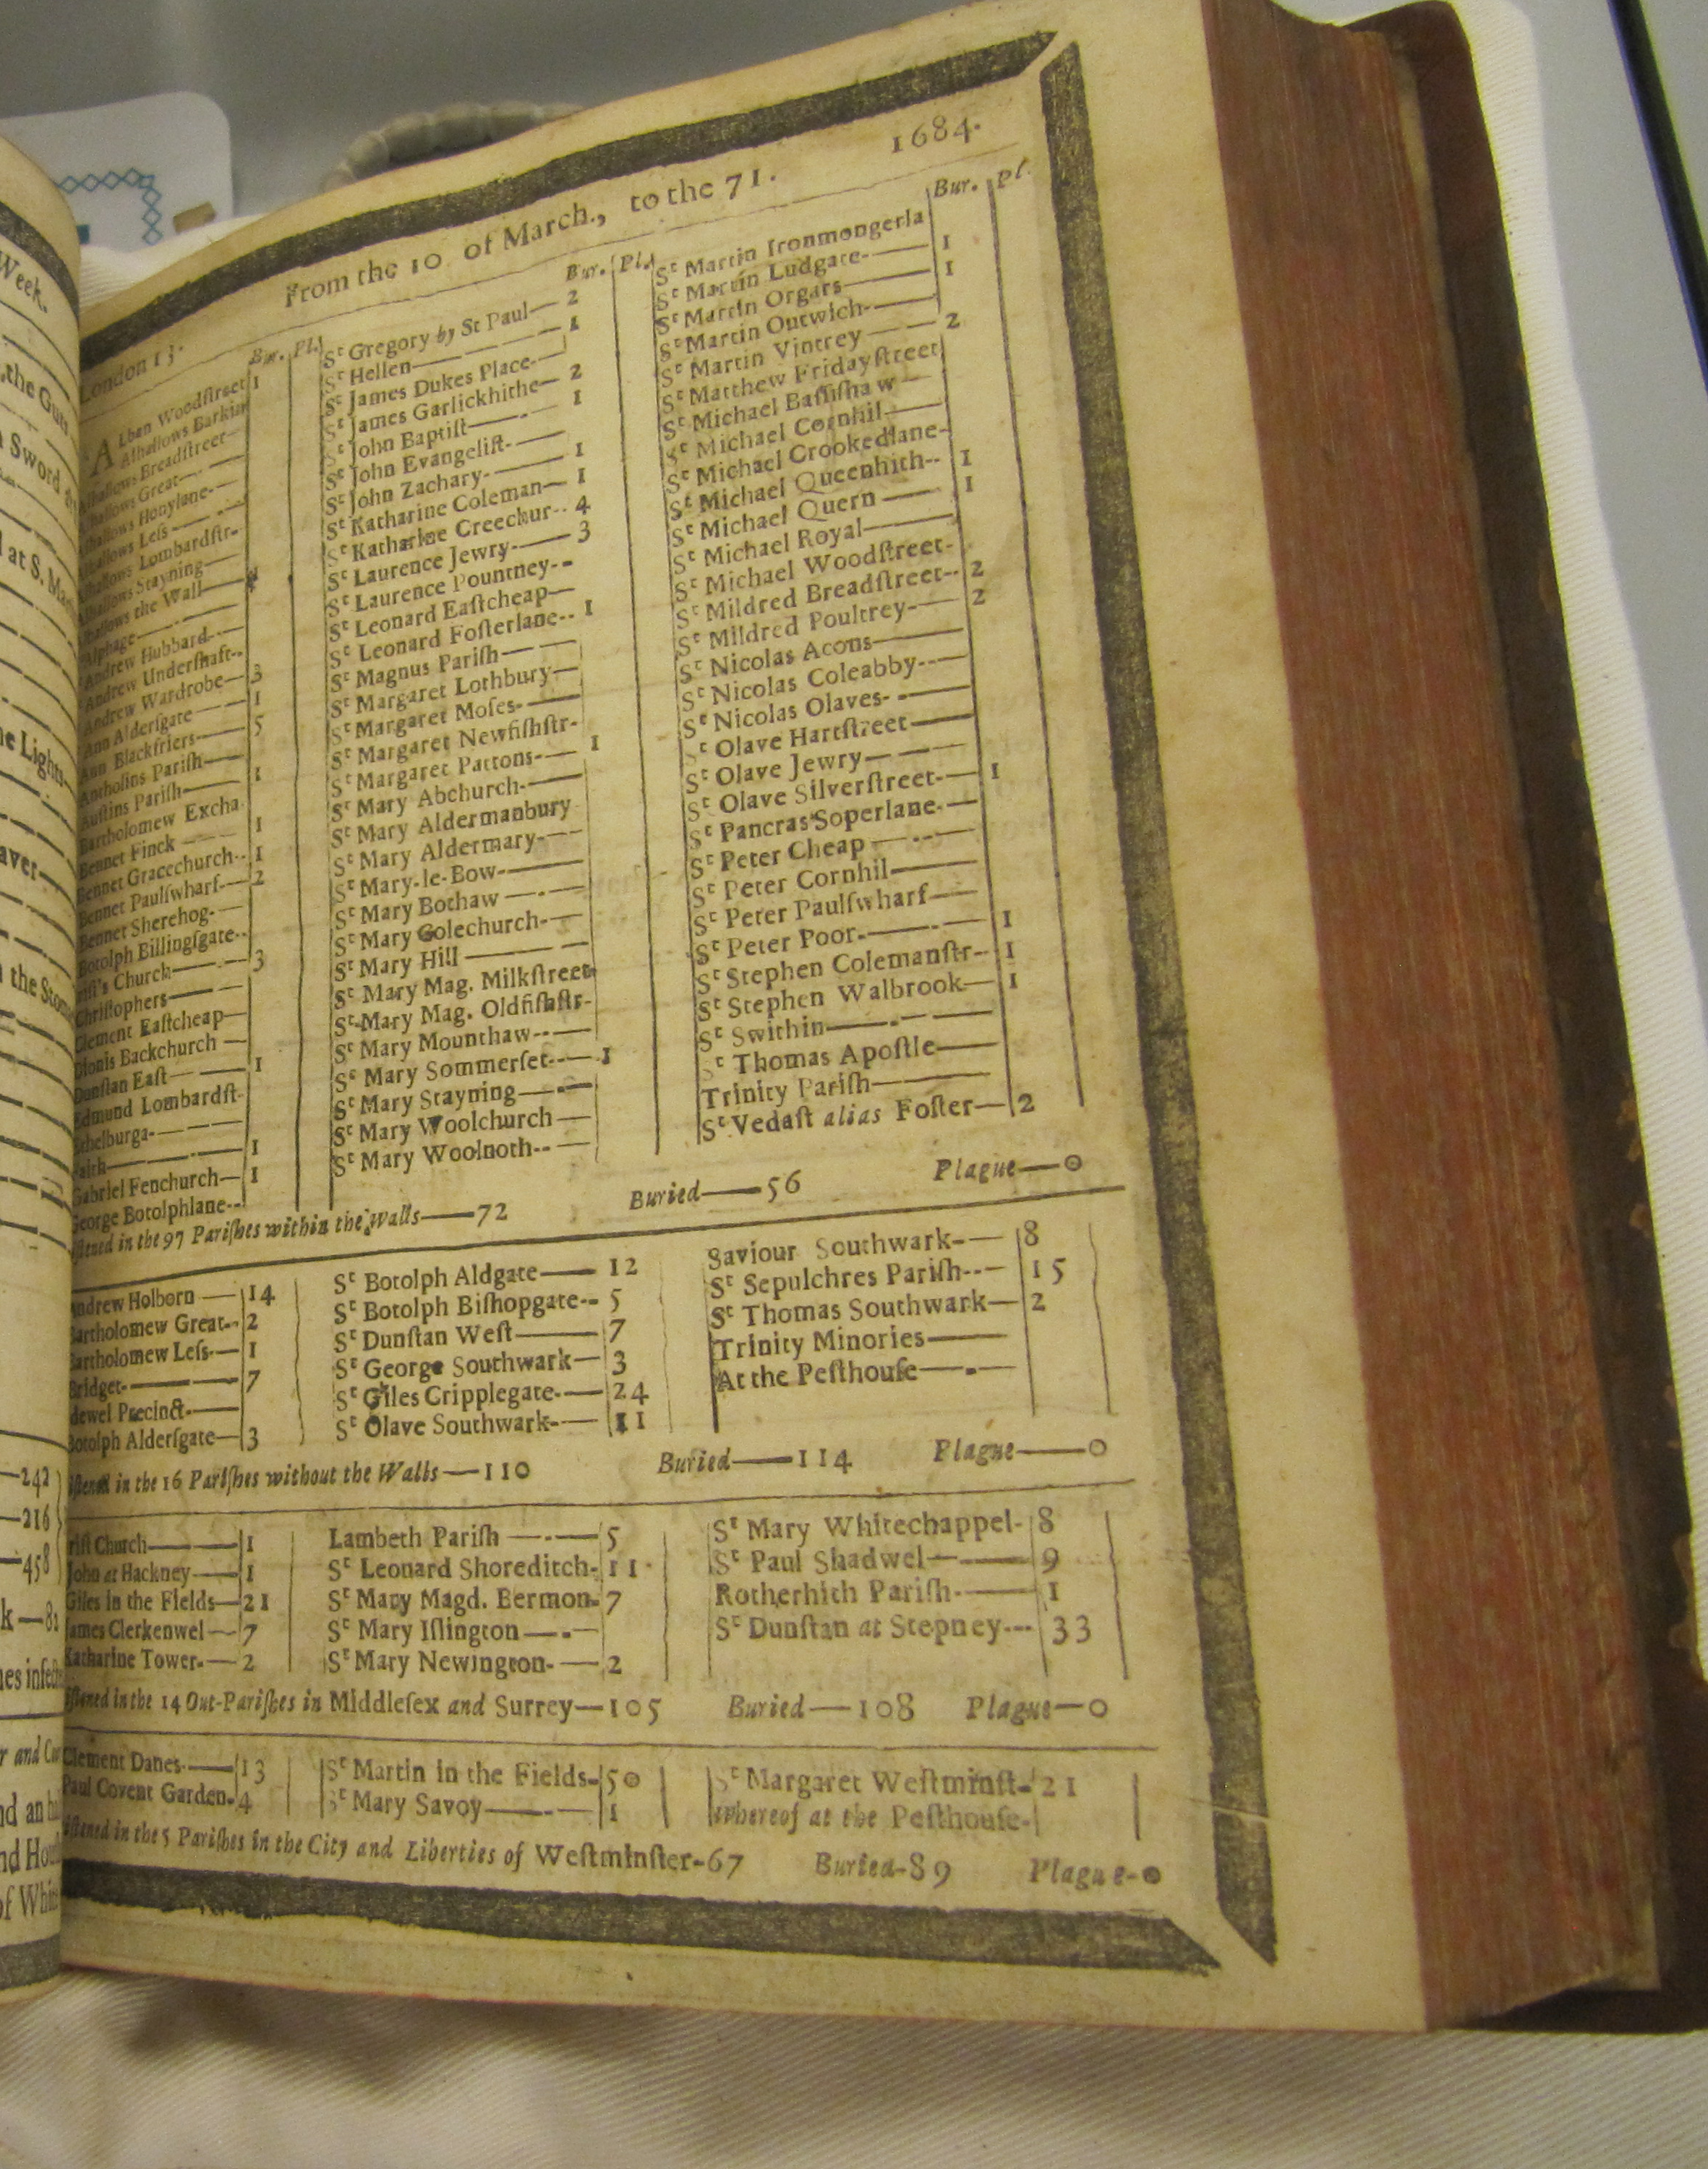 Week.
the Guts
Sword
at S. Ma
he Lights
aver
the Stom
242
216
458
k—8
es infe
r and
nd an
nd Hou
of Whi
London 13. From the 10 of March., to the 71. 1684.
Bur. Pl.
ALban Woodſtreet 1
Alhallows Barkin
Alhallows Breadſtreet
Alhallows Great
Alhallows Honylane
Alhallows Leſs
Alhallows Lombardſtr
Alhallows Stayning
Alhallows the Wall
Alphage
Andrew Hubbard
Andrew Underſhaft
Andrew Wardrobe 3
Ann Alderſgate 1
Ann Blackfriers 5
Antholins Pariſh
Auſtins Pariſh 1
Bartholomew Excha
Bennet Finck 1
Bennet Gracechurch 1
Bennet Paulſwharf 2
Bennet Sherehog
Botolph Billingſgate
riſt's Church 3
Chriſtophers
Clement Eaſtcheap
Dionis Backchurch
Dunſtan Eaſt 1
Edmund Lombardſt
Ethelburga
Faith 1
Gabriel Fenchurch 1
George Botolphlane
Bur. Pl.
St Gregory by St Paul 2
St Hellen 1
St James Dukes Place
St James Garlickhithe 2
St John Baptiſt 1
St John Evangeliſt
St John Zachary 1
St Katharine Coleman 1
St Katharine Creechur 4
St Laurence Jewry 3
St Laurence Pountney
St Leonard Eaſtcheap
St Leonard Foſterlane 1
St Magnus Pariſh
St Margaret Lothbury
St Margaret Moſes
St Margaret Newfiſhſtr
St Margaret Pattons 1
St Mary Abchurch
St Mary Aldermanbury
St Mary Aldermary
St Mary-le-Bow
St Mary Bothaw
St Mary Colechurch
St Mary Hill
St Mary Mag. Milkſtreet
St Mary Mag. Oldfiſhſtr
St Mary Mounthaw
St Mary Sommerſet 1
St Mary Stayning
St Mary Woolchurch
St Mary Woolnoth
Bur. Pl.
St Martin Ironmongerla
St Martin Ludgate 1
St Martin Orgars 1
St Martin Outwich
St Martin Vintrey 2
St Matthew Fridayſtreet
St Michael Baſſiſhaw
St Michael Cornhil
St Michael Crookedlane
St Michael Queenhith 1
St Michael Quern 1
St Michael Royal
St Michael Woodſtreet
St Mildred Breadſtreet 2
St Mildred Poultrey 2
St Nicolas Acons
St Nicolas Coleabby
St Nicolas Olaves
St Olave Hartſtreet
St Olave Jewry
St Olave Silverſtreet 1
St Pancras Soperlane
St Peter Cheap
St Peter Cornhil
St Peter Paulſwharf
St Peter Poor 1
St Stephen Colemanſtr 1
St Stephen Walbrook 1
St Swithin
St Thomas Apoſtle
Trinity Pariſh
St Vedaſt alias Foſter 2
ſtened in the 97 Pariſhes within the Walls—72 Buried—56 Plague—0
Andrew Holborn 14
Bartholomew Great 2
Bartholomew Leſs 1
Bridget 7
dewel Precinct
Botolph Alderſgate 3
St Botolph Aldgate 12
St Botolph Biſhopgate 5
St Dunſtan Weſt 7
St George Southwark 3
St Giles Cripplegate 24
St Olave Southwark 11
Saviour Southwark 8
St Sepulchres Pariſh 15
St Thomas Southwark 2
Trinity Minories
At the Peſthouſe
ſtened in the 16 Pariſhes without the Walls—110 Buried—114 Plague—0
riſt Church 1
John at Hackney 1
Giles in the Fields 21
James Clerkenwel 7
Katharine Tower 2
Lambeth Pariſh 5
St Leonard Shoreditch 11
St Mary Magd. Bermon 7
St Mary Iſlington
St Mary Newington 2
St Mary Whitechappel 8
St Paul Shadwel 9
Rotherhith Pariſh 1
St Dunſtan at Stepney 33
ſtened in the 14 Out-Pariſhes in Middleſex and Surrey—105 Buried—108 Plague—0
Clement Danes 13
Paul Covent Garden 4
St Martin in the Fields 50
St Mary Savoy 1
St Margaret Weſtminſt 21
whereof at the Peſthouſe
ſtened in the 5 Pariſhes in the City and Liberties of Weſtminſter-67 Buried-89 Plague-0